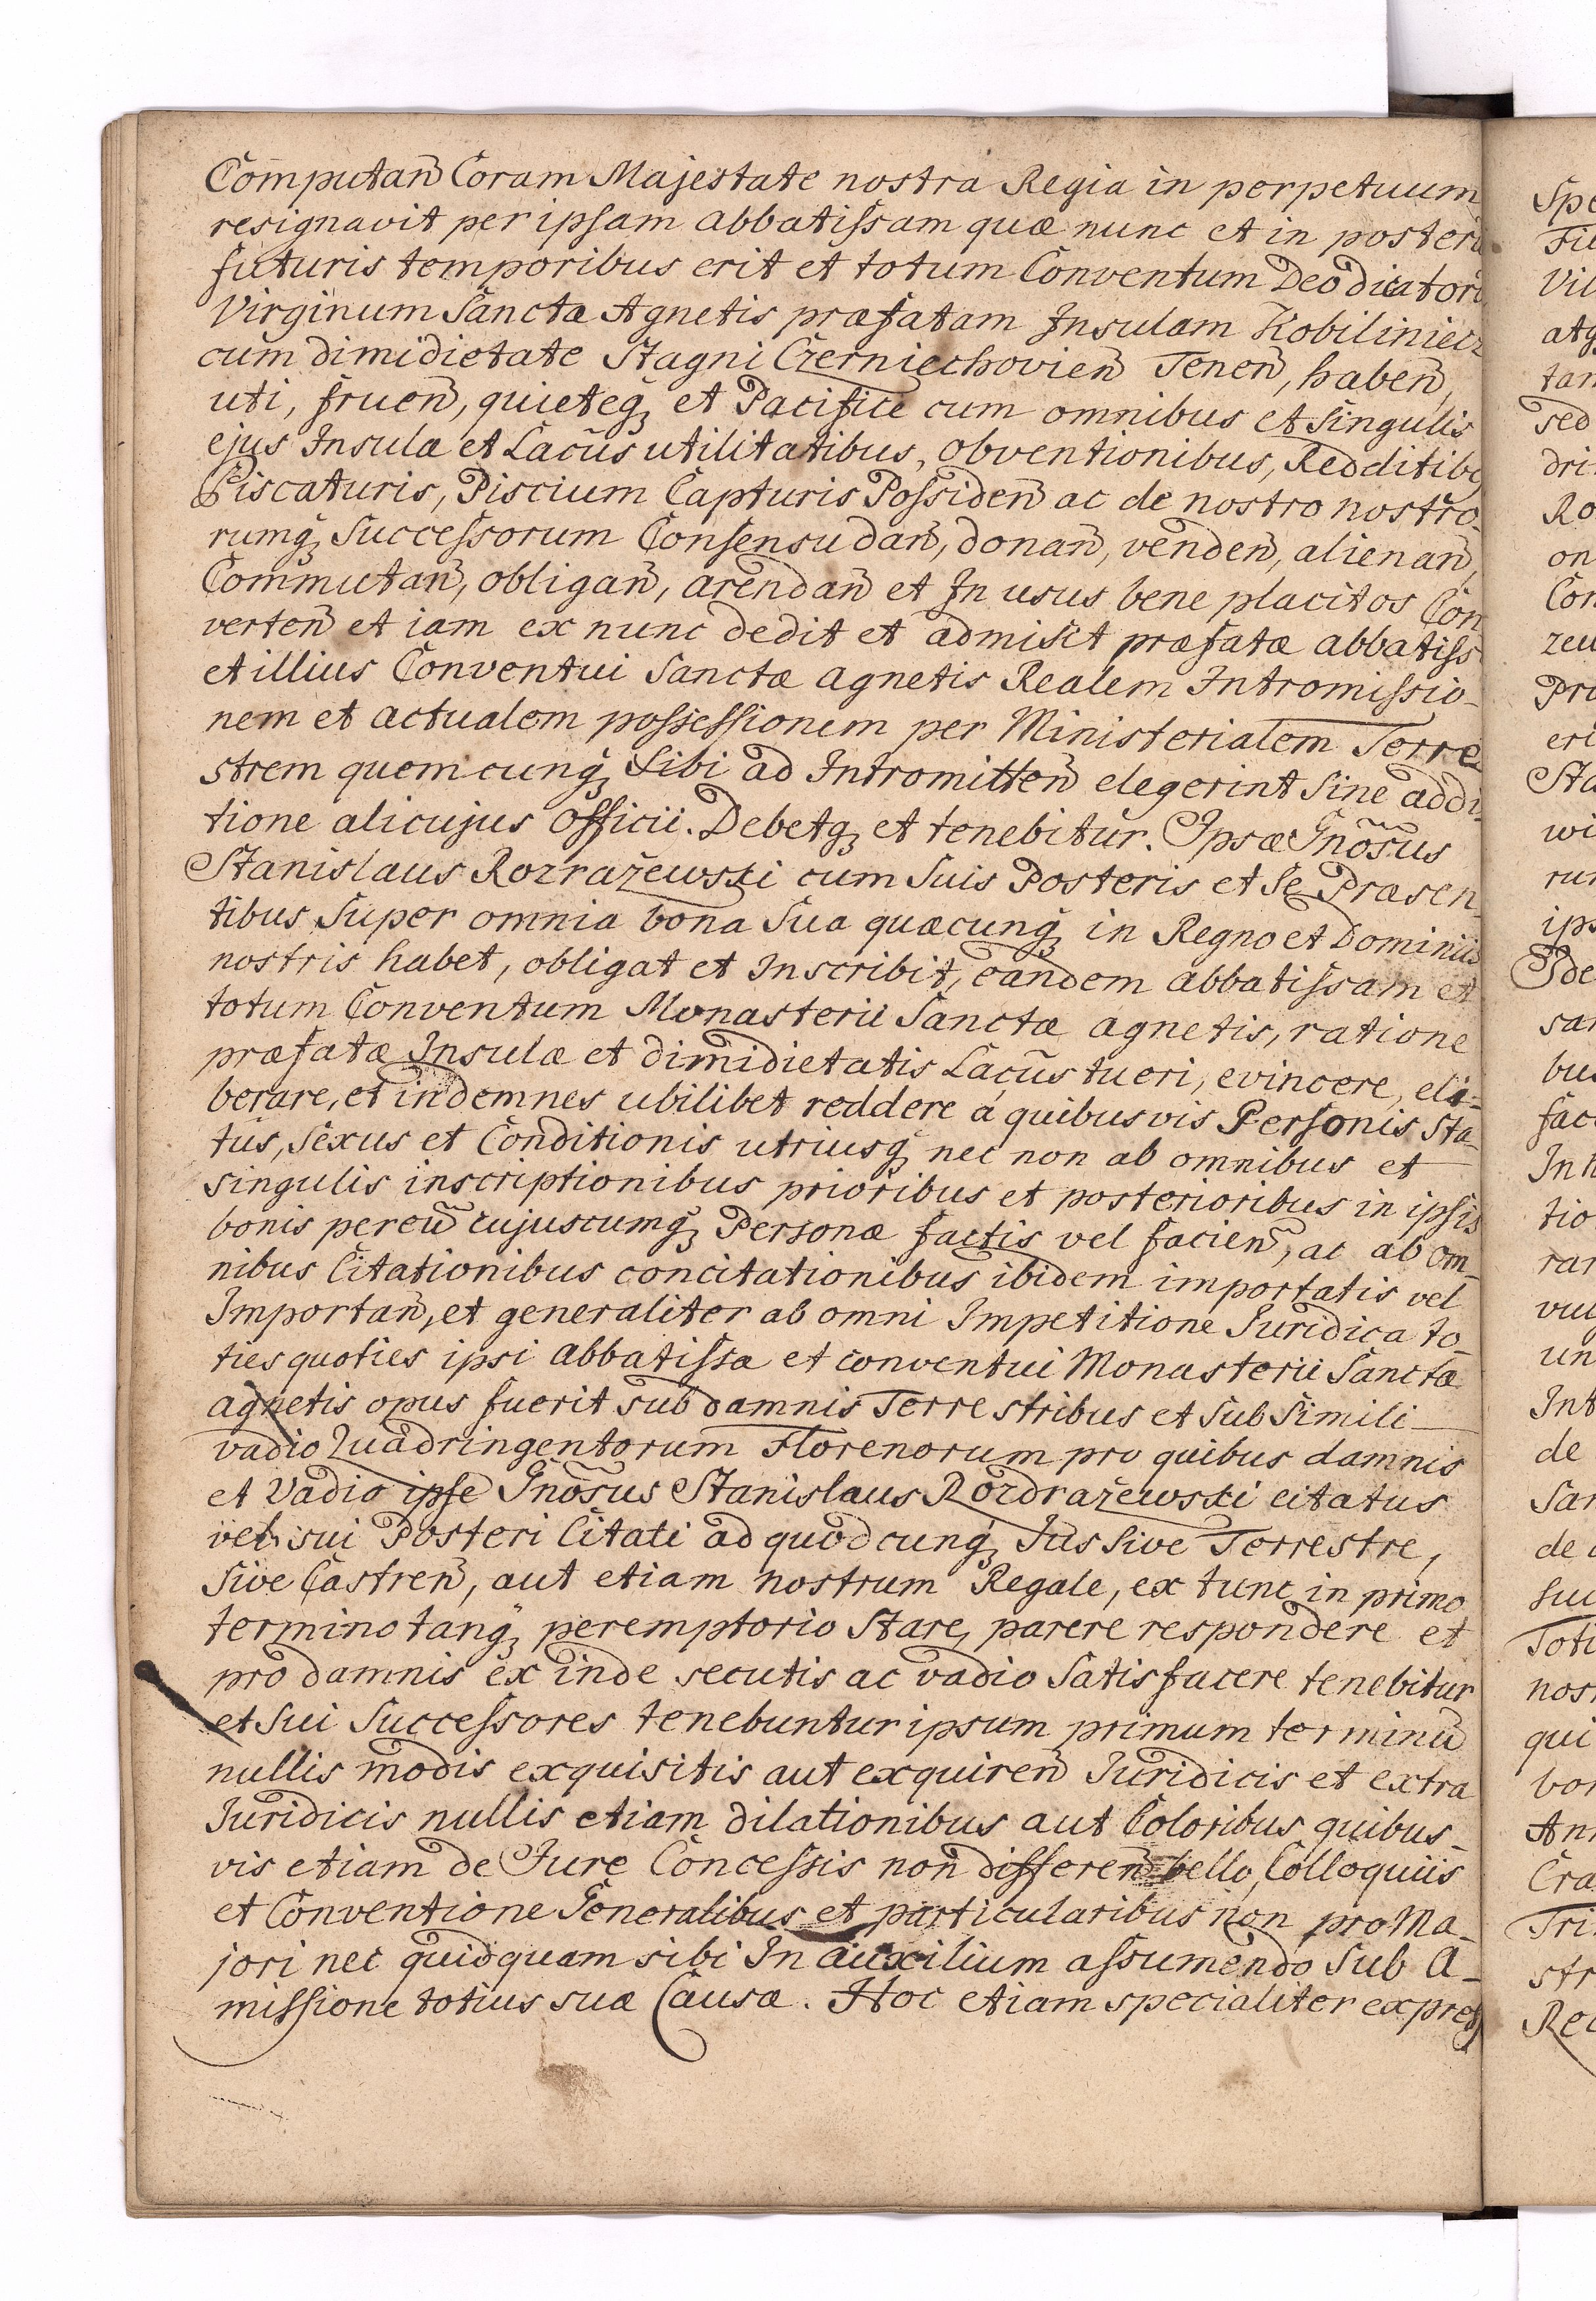 Computan̄ Coram Majestate nostra Regia in perpetuum
resignavit per ipsam abbatissam quæ nunc et in posteru
futuris temporibus erit et totum Conventum Deo dicatoru
Virginum Sanctæ Agnetis præfatam Insulam Kobiliniecz
cum dimidietate Stagni Czerniechovien̄ Tenen̄, haben̄,
uti, fruen̄, quieteq̨ et Pacifice cum omnibus et Singulis
ejus Insulæ et Lacūs utilitatibus, obventionibus, Redditibq
Piscaturis, Piscium Capturis Possiden̄ ac de nostro nostro-
rumq̨ Successorum Consensu dan̄, donan̄, venden̄, alienan̄,
Commutan̄, obligan̄, arendan̄ et In usus bene placitos Con
verten̄ et iam ex nunc dedit et admisit præfatæ abbatiss
et illius Conventui Sanctæ Agnetis Realem Intromissio-
nem et actualem possessionem per Ministerialem Terre
strem quemcunq̨ Sibi ad Intromitten̄ elegerint Sine addi-
tione alicujus officii. Debetq̨ et tenebitur. Ipsæ Gnōsus
Stanislaus Rozrażewski cum Suis Posteris et Se Præsen-
tibus Super omnia bona Sua quæcunq̨ in Regno et Dominiis
nostris habet, obligat et Inscribit, eandem abbatissam et
totum Conventum Monasterii Sanctæ agnetis, ratione
præfatæ Insulæ et dimidietatis Lacūs tueri, evincere, eli-
berare, et indemnes ubilibet reddere á quibusvis Personis Sta-
tus, Sexus et Conditionis utriusq̨ nec non ab omnibus et
singulis inscriptionibus prioribus et posterioribus in ipsis
bonis per eū cujuscumq̨ Personæ factis vel facien̄, ac ab om-
nibus Citationibus concitationibus ibidem importatis vel
Importan̄, et generaliter ab omni Impetitione Juridica to-
ties quoties ipsi abbatissæ et conventui Monasterii Sanctæ
agnetis opus fuerit sub damnis Terrestribus et Sub Simili
vadio Quadringentorum Florenorum pro quibus damnis
et Vadio ipse Gnōsus Stanislaus Rozdrażewski citatus
vel sui Posteri Citati ad quodcunq̨ Jus Sive Terrestre,
Sive Castren̄, aut etiam nostrum Regale, ex tunc in primo
termino tanq̨ peremptorio Stare, parere respondere et
pro damnis ex inde secutis ac vadio Satisfacere tenebitur
et Sui Successores tenebuntur ipsum primum terminū
nullis modis exquisitis aut exquiren̄ Juridicis et extra
Juridicis nullis etiam dilationibus aut Coloribus quibus-
vis etiam de Jure Concessis non differen̄ bello, Colloquiis
et Conventione Generalibus et particularibus non pro Ma-
jori nec quidquam sibi In auxilium assumendo Sub A-
missione totius suæ Causæ. Hoc etiam specialiter expres